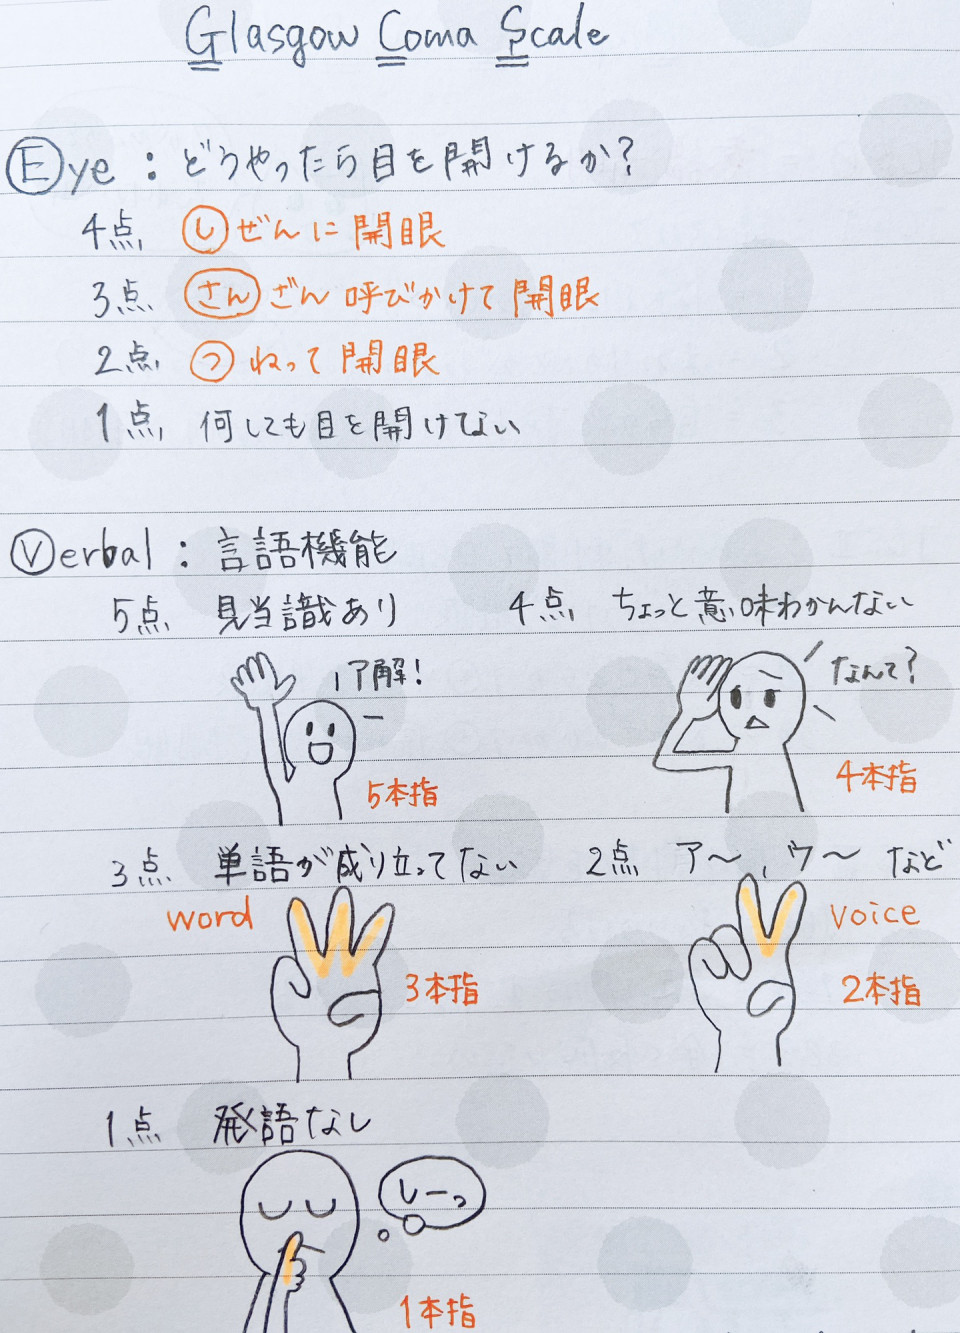 Glasgow Coma Scale
Eye：どうやったら目を開けるか？
4点 しぜんに開眼
3点 さんざん呼びかけて開眼
2点 つねって開眼
1点 何しても目を開けてない
Verbal：言語機能
5点 見当識あり
4点 ちょっと意味わかんない
了解！
なんて？
5本指
4本指
3点 単語が成り立ってない
2点 ア〜，ウ〜 など
word
voice
3本指
2本指
1点 発語なし
しーっ
1本指